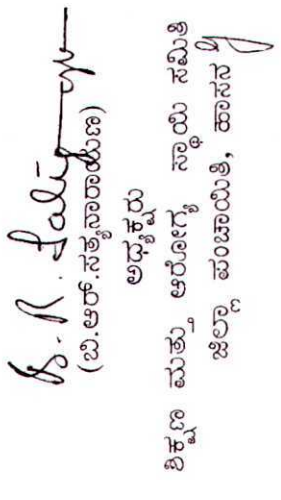 B. R. Satya
(ಬಿ.ಆರ್.ಸತ್ಯನಾರಾಯಣ)
ಅಧ್ಯಕ್ಷರು
ಶಿಕ್ಷಣ ಮತ್ತು ಆರೋಗ್ಯ ಸ್ಥಾಯಿ ಸಮಿತಿ
ಜಿಲ್ಲಾ ಪಂಚಾಯಿತಿ, ಹಾಸನ